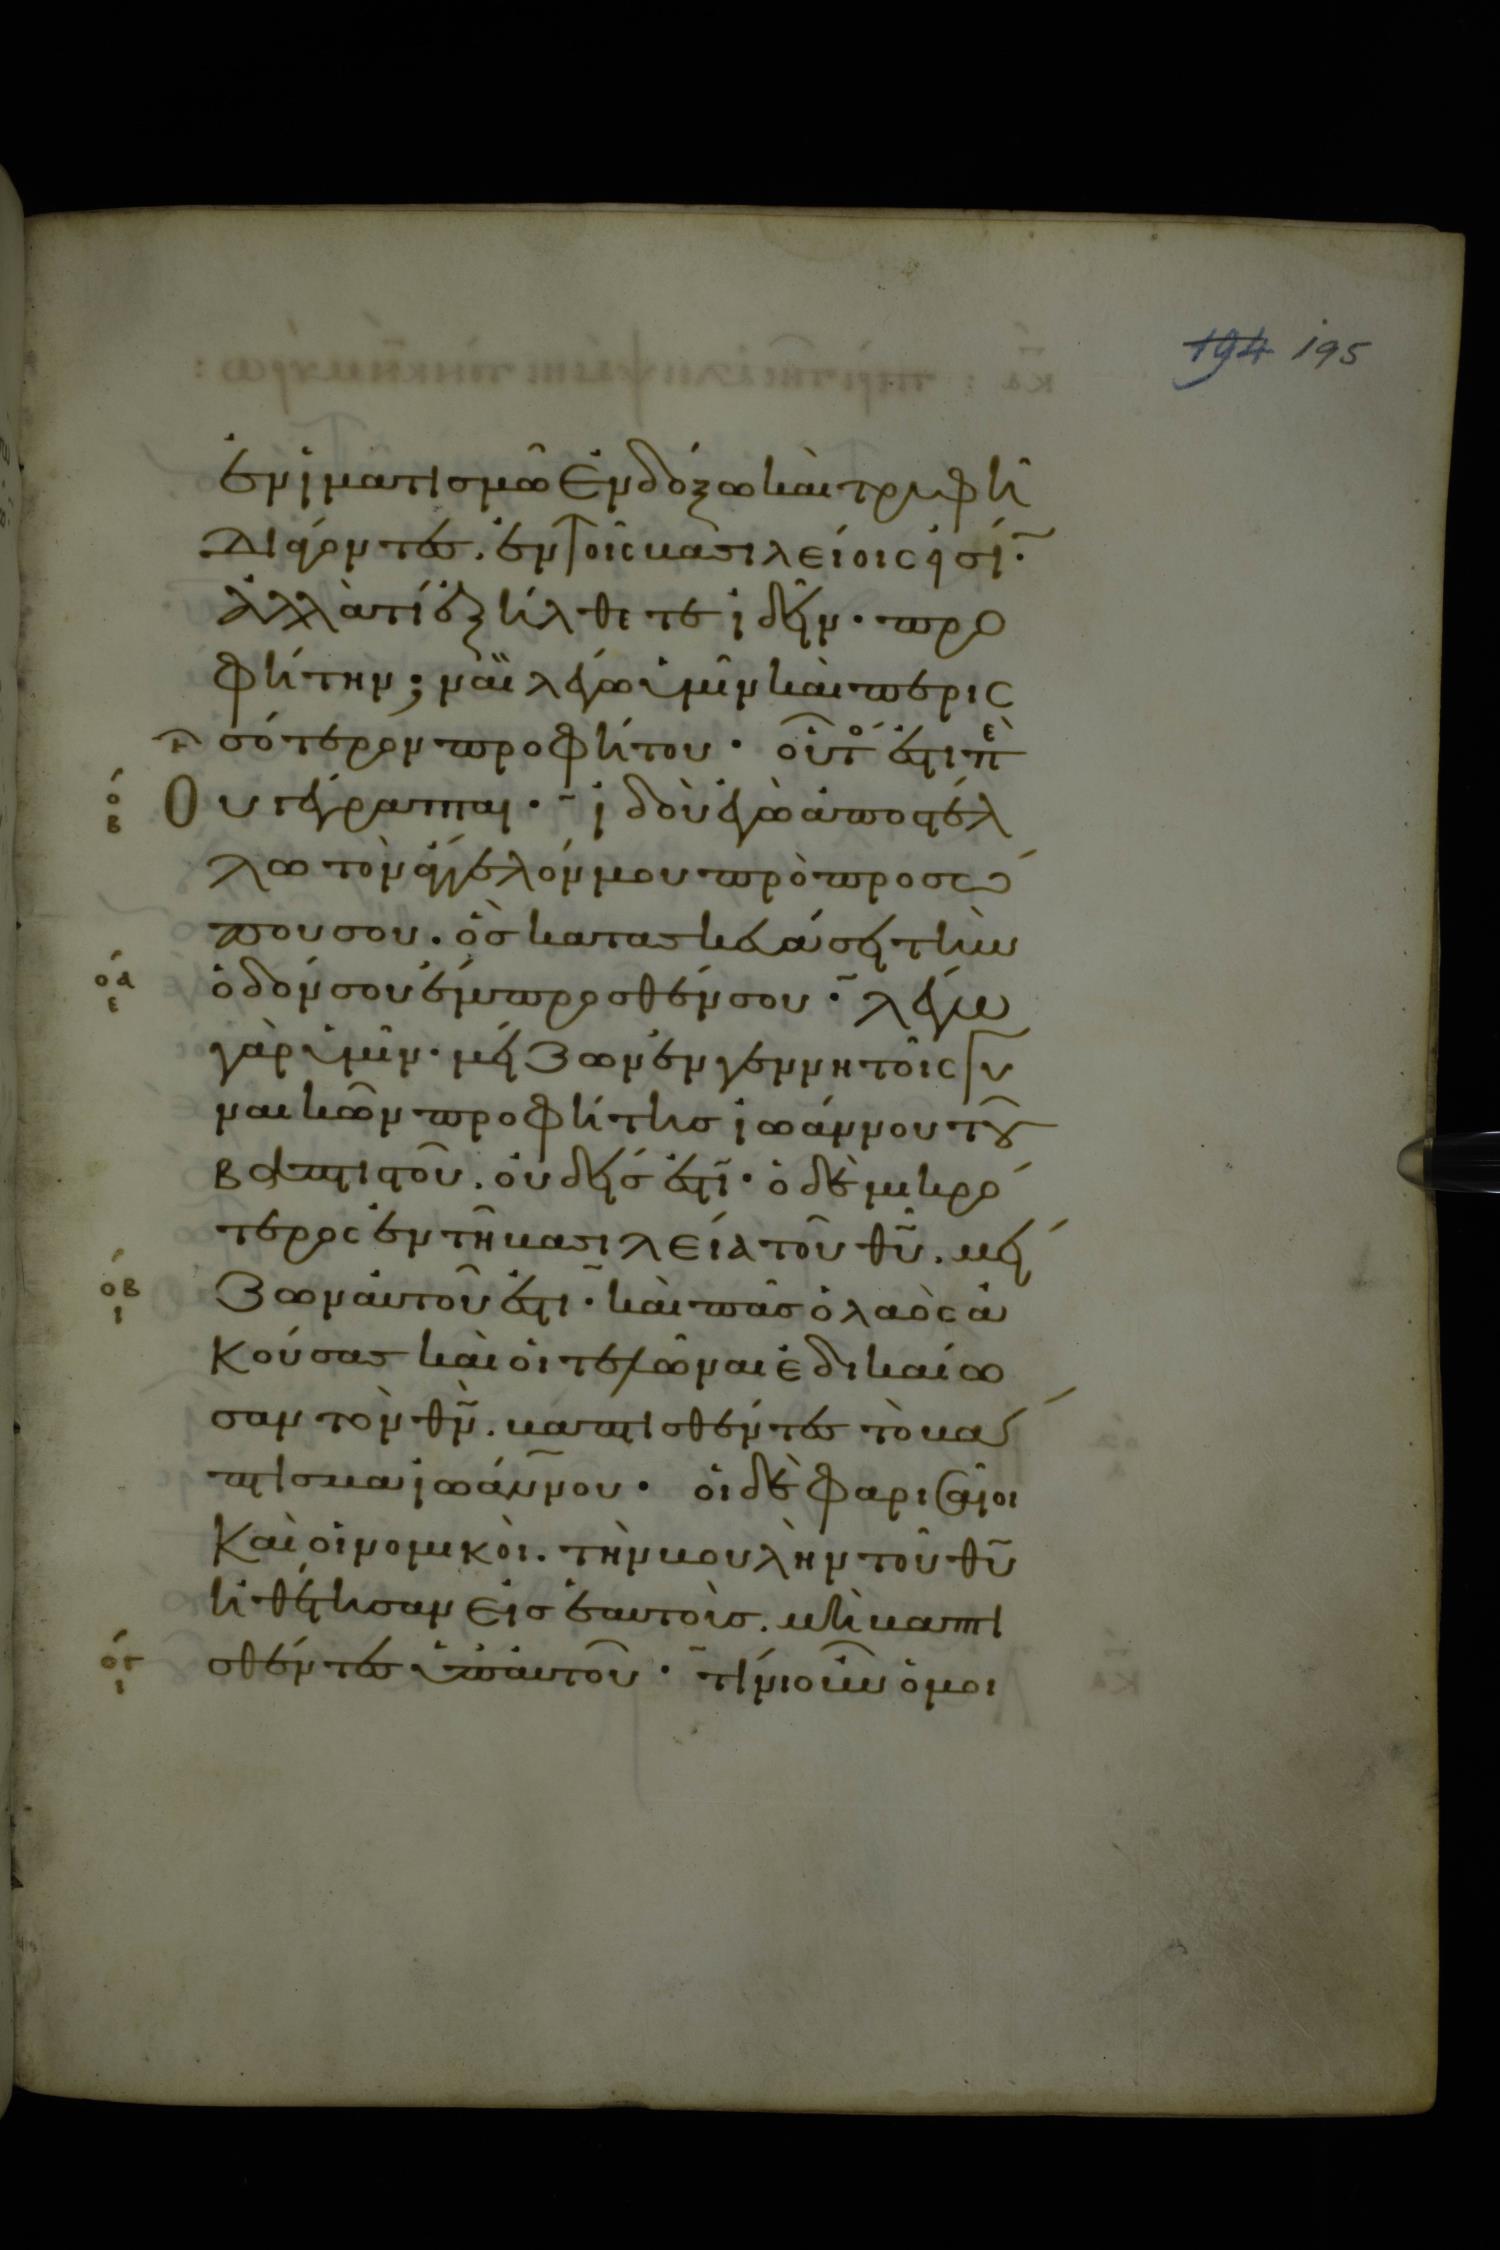 194 195
ἐν ἱματισμῶ ἐνδόξω καὶ τρυφῆ
διάγοντες. ἐν τοῖς βασιλείοις εἰσί·
ἀλλὰ τί ἐξήλθετε ἰδεῖν· προ
φήτην; ναῒ λέγω ὑμῖν καὶ περισ
σότερον προφήτου· οὗτό ἐστι πὲ
ο
β
Ου γέγραπται· ἰδοὺ ἐγὼ ἀποστέλ
λω τὸν ἄγγελόν μου πρὸ προσώ
που σου. ὃς κατασκευάσει τὴν
οα
ε
ὁδόν σου ἔμπροσθέν σου· λέγω
γὰρ ὑμῖν· μείζων ἐν γεννητοῖς γυ
ναικῶν προφήτης ἰωάννου τοῦ
βαπτιστοῦ. οὐδείς ἐστι· ὁ δὲ μικρό
τερος ἐν τῆ βασιλεία τοῦ θυ. μεί
οβ
ι
ζων αὐτοῦ ἐστι· καὶ πᾶς ὁ λαὸς ἀ
κούσας καὶ οἱ τελῶναι ἐδικαίω
σαν τὸν θν. βαπτισθέντες τὸ βά
πτισμα ἰωάννου· οἱ δὲ φαρισαῖοι
καὶ οἱ νομικοὶ. τὴν βουλὴν τοῦ θυ
ἠθέτησαν εἰς ἑαυτοὺς. μὴ βαπτι
ογ
ι
σθέντες ὑπ' αὐτοῦ· τίνι οὖν ὁμοι